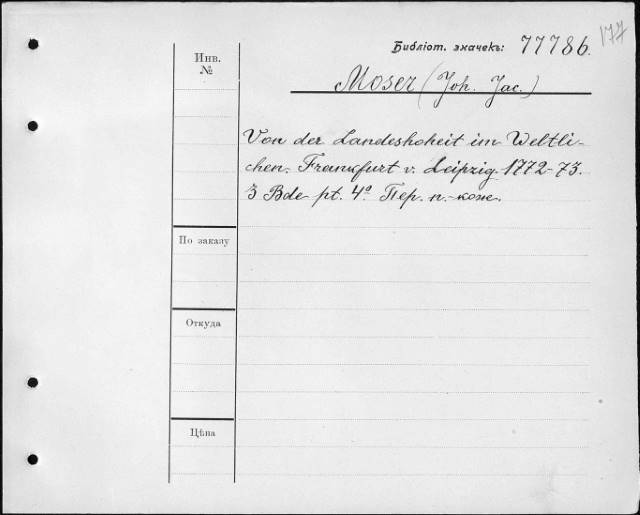 177
Библіот. значекъ: 77786.
Инв.
№
Moser (Joh. Jac.)
Von der Landeshoheit im Weltli-
chen. Frankfurt v. Leipzig. 1772-73.
3 Bde pt. 4º Пер. п.-кож.
По заказу
Откуда
Цѣна